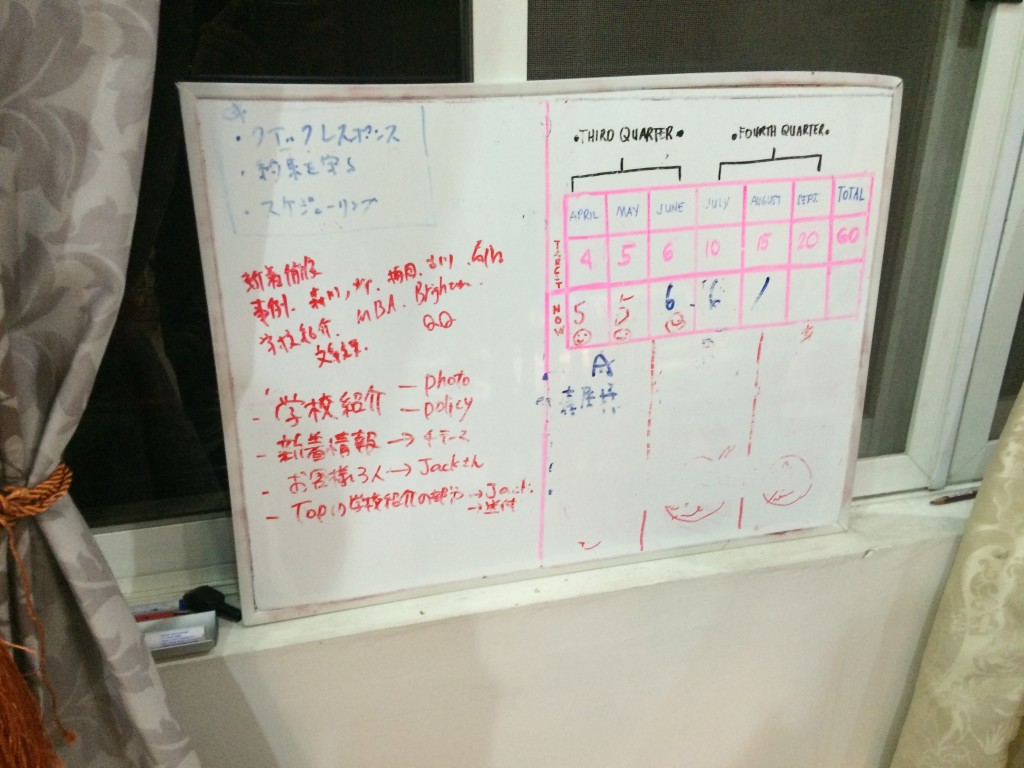 ・クイックレスポンス
・約束を守る
・スケジューリング
新着情報
事例、森川、
学校紹介、MBA、
QQ
- 学校紹介 — photo
— policy
- 新着情報 → 4テーマ
- お客様3人 → Jackさん
- Topの学校紹介の部分 → Jack
•THIRD QUARTER•
•FOURTH QUARTER•
APRIL MAY JUNE JULY AUGUST SEPT. TOTAL
4 5 6 10 15 20 60
NOW 5 5 6 6 /
A